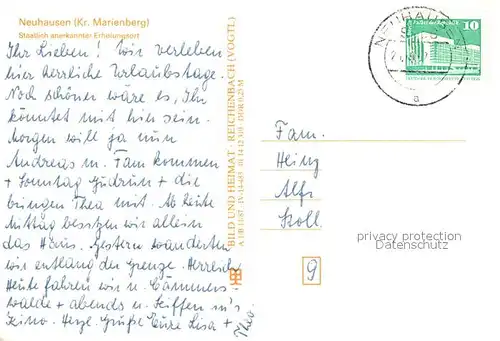 Neuhausen (Kr. Marienberg)
Staatlich anerkannter Erholungsort
Ihr Lieben! Wir verleben
hier herrliche Urlaubstage.
Noch schöner wäre es, Ihr
könntet mit hier sein.
Morgen will ja nun
Andreas m. Fam kommen
+ Sonntag Gudrun + die
bringen Thea mit. Ab heute
Mittag besitzen wir allein
das Haus. Gestern wanderten
wir entlang der Grenze. Herrlich
Heute fahren wir n. Cämmers-
walde + abends n. Seiffen in's
Kino. Herzl. Grüße Eure Lisa +
Theo.
BILD UND HEIMAT · REICHENBACH (VOGTL)
NEUHAUSEN
a
10
Fam.
Heinz
Alfr
Koll.
9
privacy protection
Datenschutz